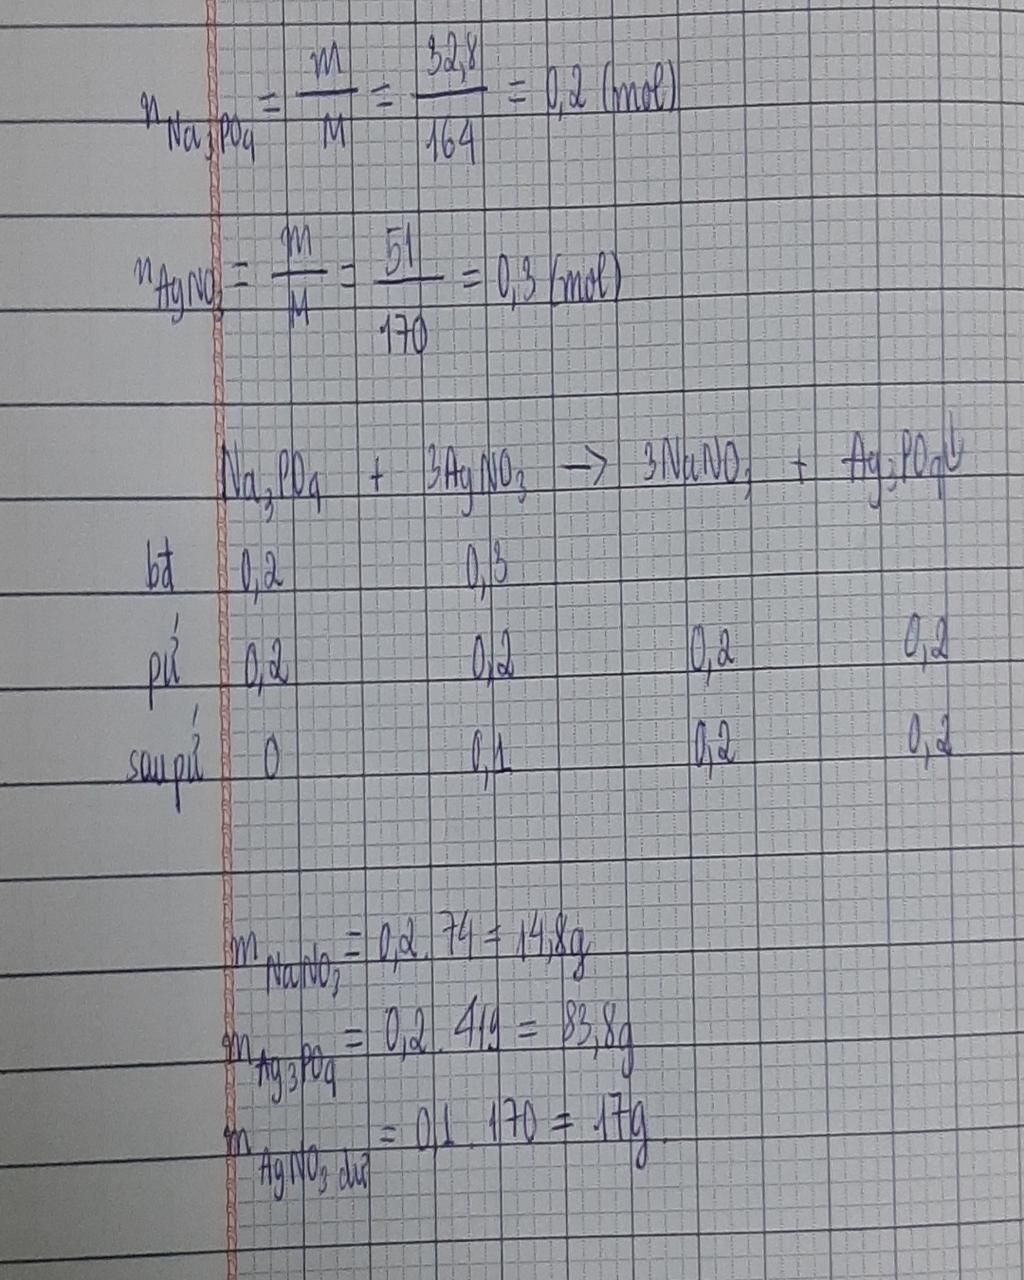 n Na₃PO₄ = m/M = 32,8/164 = 0,2 (mol)
n AgNO₃ = m/M = 51/170 = 0,3 (mol)
Na₃PO₄ + 3AgNO₃ -> 3NaNO₃ + Ag₃PO₄↓
bđ 0,2 0,3
pứ 0,2 0,2 0,2 0,2
sau pứ 0 0,1 0,2 0,2
m NaNO₃ = 0,2 . 74 = 14,8g
m Ag₃PO₄ = 0,2 . 419 = 83,8g
m AgNO₃ dư = 0,1 . 170 = 17g